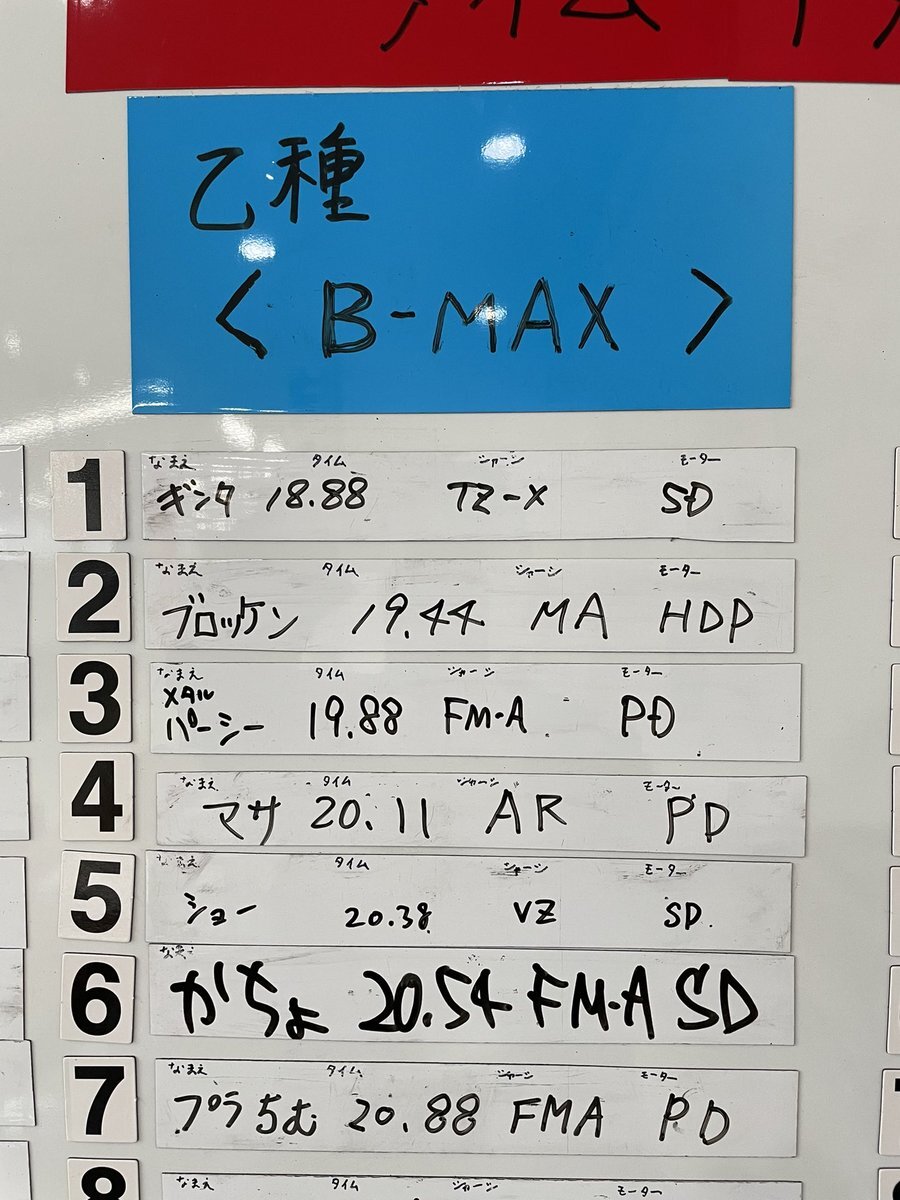 乙種
< B-MAX >
1 なまえ タイム シャーシ モーター
ギンタ 18.88 TZ-X SD
2 なまえ タイム シャーシ モーター
ブロッケン 19.44 MA HDP
3 なまえ タイム シャーシ モーター
メタル
パーシー 19.88 FM-A PD
4 なまえ タイム シャーシ モーター
マサ 20.11 AR PD
5 なまえ タイム シャーシ モーター
ショー 20.38 VZ SD
6 なまえ
かちょ 20.54 FM-A SD
7 なまえ タイム シャーシ モーター
プラちむ 20.88 FMA PD
8 なまえ タイム シャーシ モーター